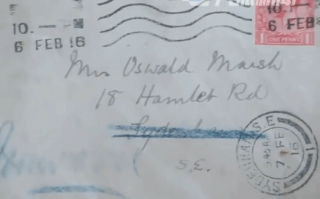 10.
6 FEB 16
10.
6 FEB
Mrs Oswald Marsh
18 Hamlet Rd
Sydenham
S.E.
SYDENHAM S.E.
7 FE
16